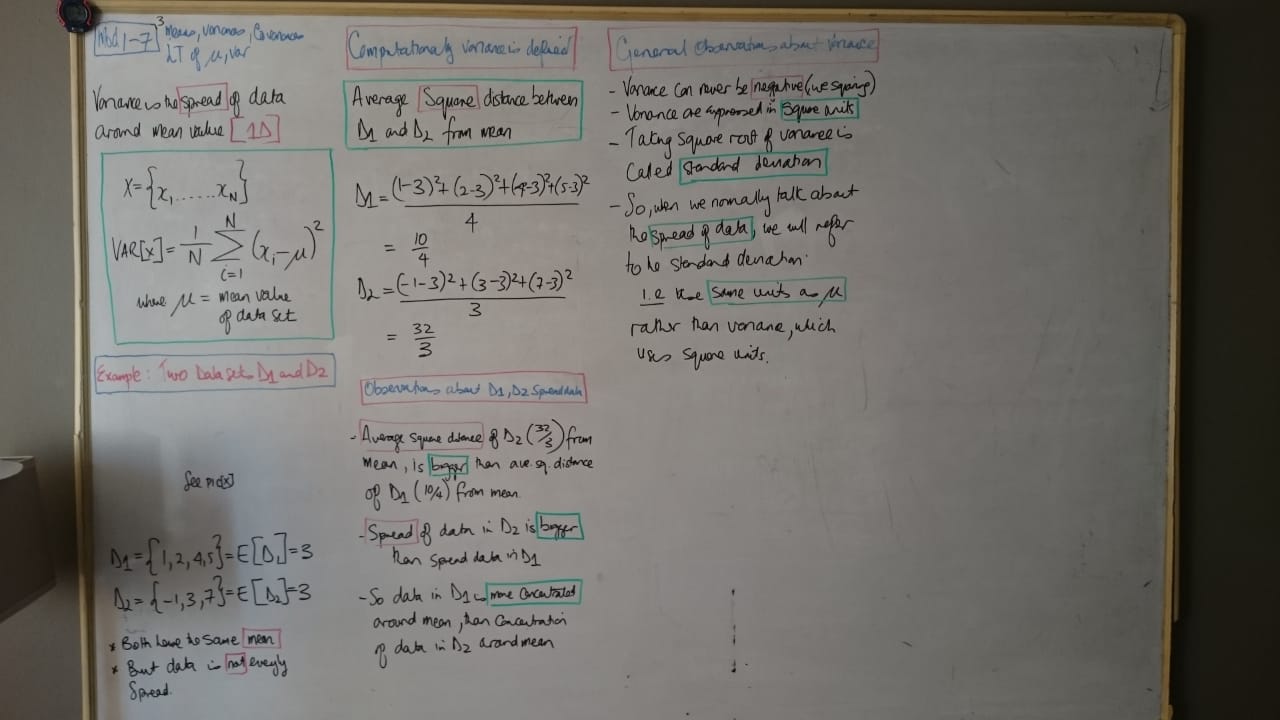 Mod 1-7
3
Means, Variances, Covariances
LT of μ, var
Variance is the spread of data
around mean value [1D]
X = {x₁, ...... x_N}
VAR[x] = 1/N Σ_{i=1}^{N} (x_i - μ)²
where μ = mean value
of data set
Example: Two Datasets D1 and D2
See pic[x]
D1 = {1, 2, 4, 5} = E[D1] = 3
D2 = {-1, 3, 7} = E[D2] = 3
* Both have the same mean
* But data is not evenly
Spread.
Computationally variance is defined
Average Square distance between
D1 and D2 from mean
D1 = (1-3)² + (2-3)² + (4-3)² + (5-3)²
4
= 10/4
D2 = (-1-3)² + (3-3)² + (7-3)²
3
= 32/3
Observations about D1, D2 Spread data
- Average square distance of D2 (32/3) from
mean, is bigger than ave. sq. distance
of D1 (10/4) from mean.
- Spread of data in D2 is bigger
than spread data in D1
- So data in D1 is more concentrated
around mean, than concentration
of data in D2 around mean
General Observations about Variance
- Variance can never be negative (we squaring)
- Variance are expressed in square units
- Taking square root of variance is
called standard deviation
- So, when we normally talk about
the spread of data, we will refer
to the standard deviation.
i.e use same units as μ
rather than variance, which
uses square units.